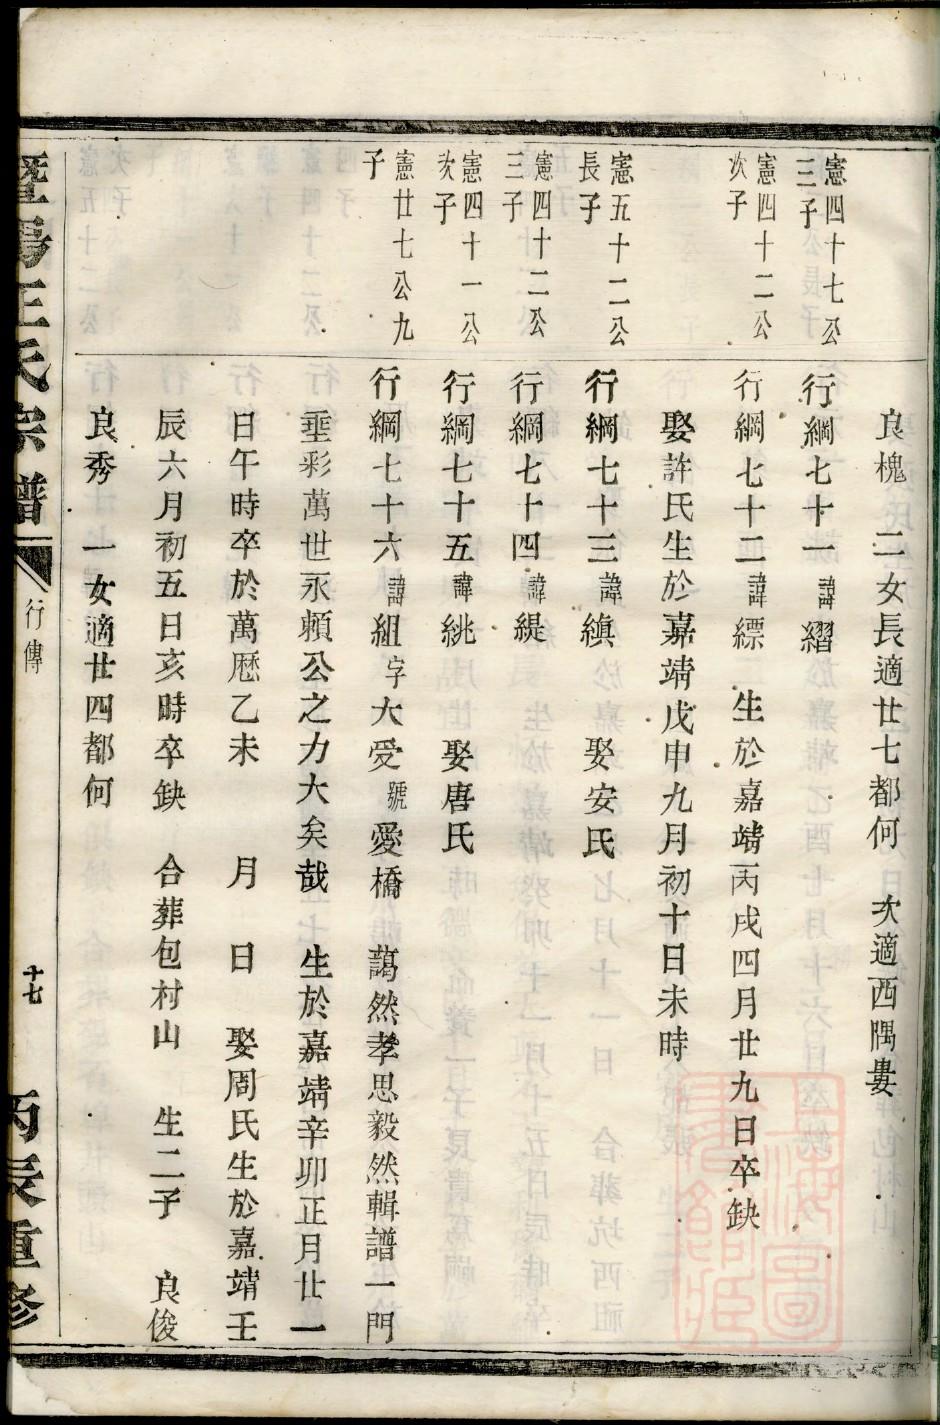 良槐 二女長適廿七都何 次適西隅婁
憲四十七公
三子
行綱七十一諱縐
憲四十二公
次子
行綱七十二諱縹 生於嘉靖丙戌四月廿九日卒缺
娶許氏生於嘉靖戊申九月初十日未時
憲五十二公
長子
行綱七十三諱縝 娶安氏
憲四十二公
三子
行綱七十四諱緹
憲四十一公
次子
行綱七十五諱絩 娶唐氏
憲廿七公九
子
行綱七十六諱組字大受號愛橋 藹然孝思毅然輯譜一門
垂彩萬世永賴公之力大矣哉 生於嘉靖辛卯正月廿一
日午時卒於萬曆乙未 月 日 娶周氏生於嘉靖壬
辰六月初五日亥時卒缺 合葬包村山 生二子 良俊
良秀 一女適廿四都何
暨陽王氏宗譜
行傳
十七
丙辰重修